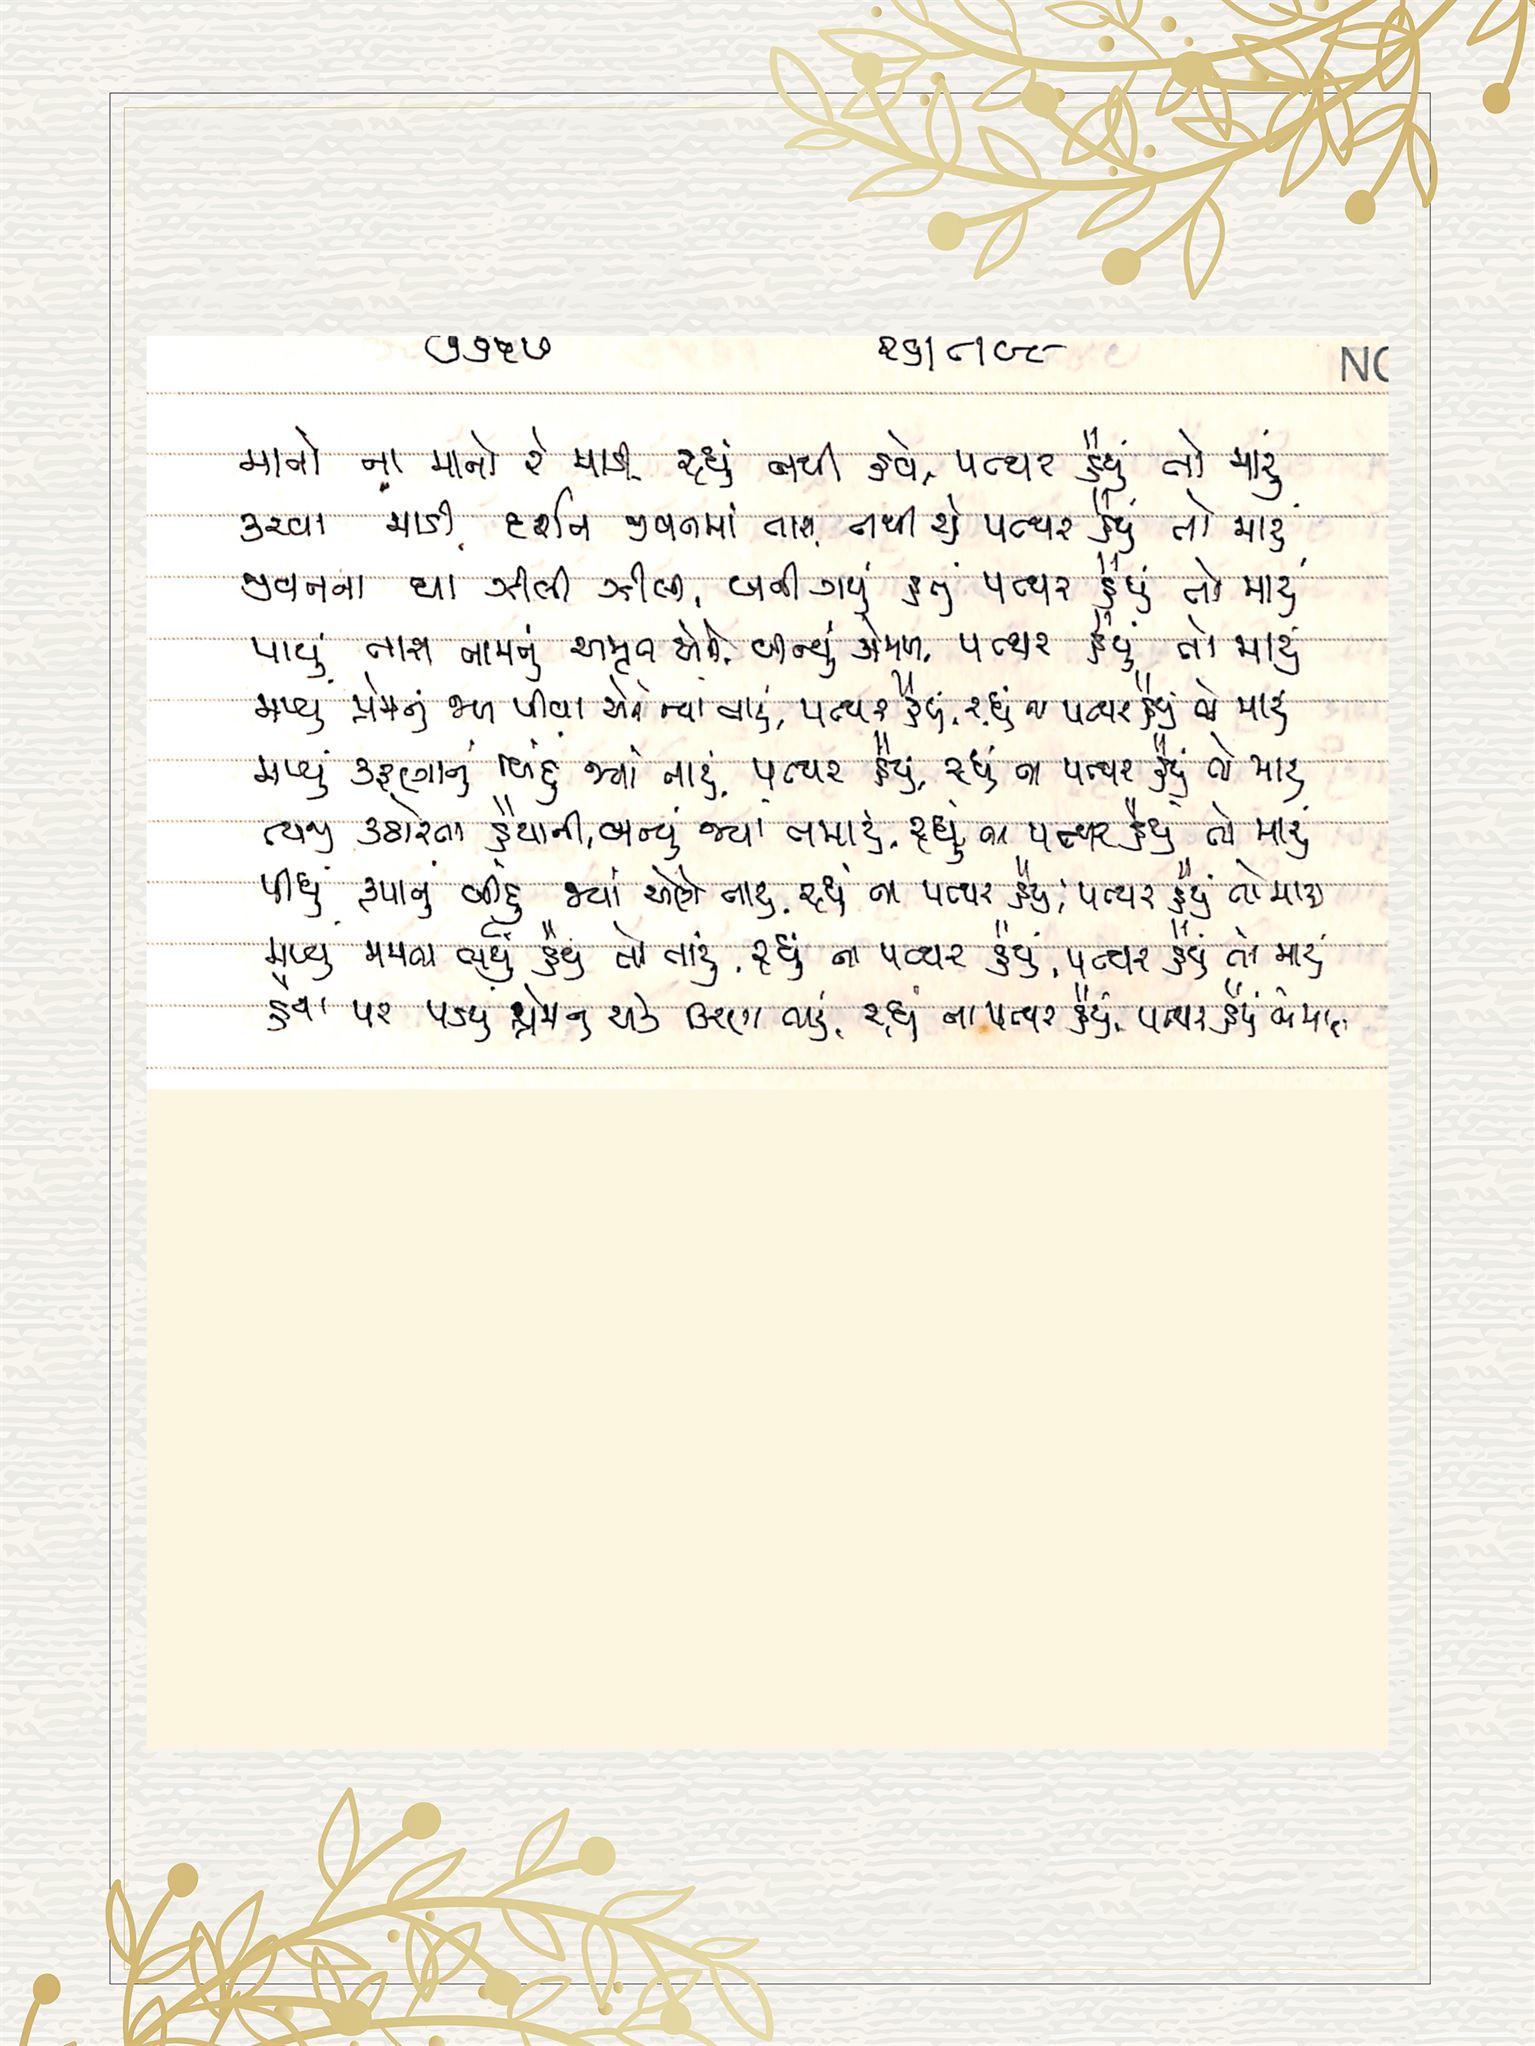 ૭૧૨૭ ૨૬/૮/૯૮ NO
માનો ના માનો રે માડી, રહ્યું નથી હવે, પત્થર હૈયું તો મારું
કરવા માડી દર્શન જીવનમાં તારા, નથી રહ્યું પત્થર હૈયું તો મારું
જીવનના ઘા ઝીલી ઝીલી, બની ગયું હતું પત્થર હૈયું તો મારું
પાયું તારા નામનું અમૃત એને, બન્યું કોમળ, પત્થર હૈયું તો મારું
મળ્યું પ્રેમનું જળ પીવા એને જ્યાં તારું, પત્થર હૈયું, રહ્યું ના પત્થર હૈયું તો મારું
મળ્યું કરૂણાનું બિંદુ જ્યાં તારું, પત્થર હૈયું, રહ્યું ના પત્થર હૈયું તો મારું
ત્યજી કઠોરતા હૈયાની, બન્યું જ્યાં તમારું, રહ્યું ના પત્થર હૈયું તો મારું
પીધું કૃપાનું બિંદુ જ્યાં એણે તારું, રહ્યું ના પત્થર હૈયું, પત્થર હૈયું તો મારું
મળ્યું મમતા ભર્યું હૈયું તો તારું, રહ્યું ના પત્થર હૈયું, પત્થર હૈયું તો મારું
હૈયા પર પડ્યું પ્રેમનું એક કિરણ તારું, રહ્યું ના પત્થર હૈયું, પત્થર હૈયું તો મારું